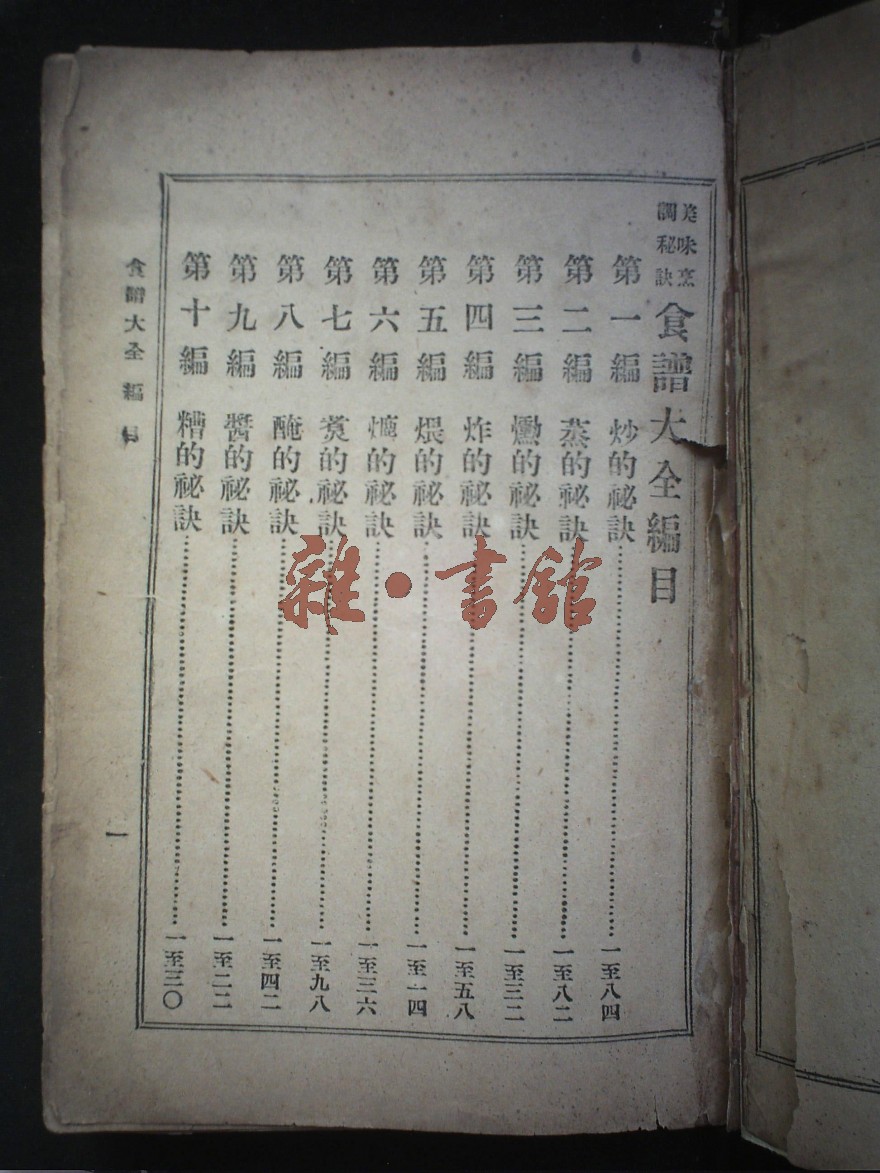 美味烹
調秘訣
食譜大全編目
第一編 炒的祕訣 一至八四
第二編 蒸的祕訣 一至八二
第三編 的祕訣 一至三二
第四編 炸的祕訣 一至五八
第五編 煨的祕訣 一至一四
第六編 的祕訣 一至三六
第七編 煑的祕訣 一至九八
第八編 醃的祕訣 一至四二
第九編 醬的祕訣 一至二二
第十編 糟的祕訣 一至三〇
食譜大全 編目
一
雜·書館